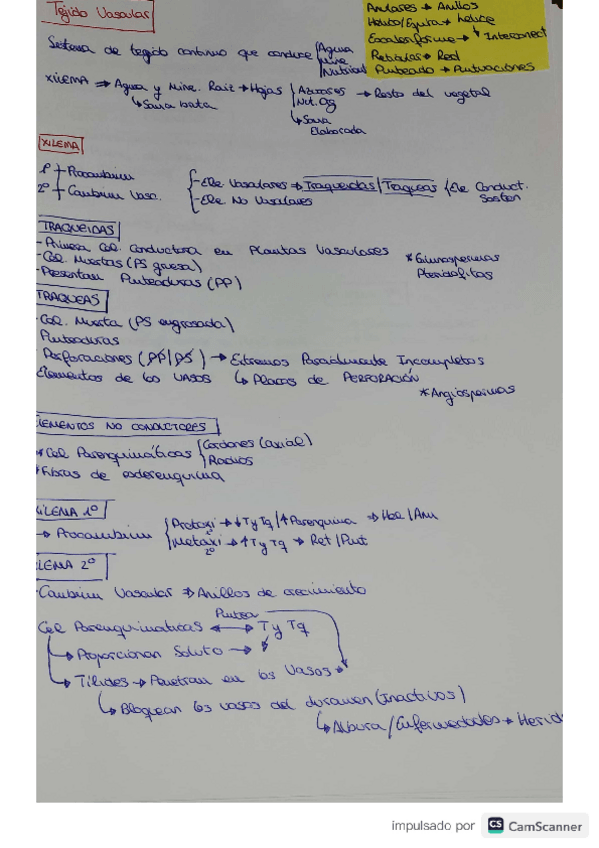 Tejido Vascular
Anulares → Anillos
Helico/Espira → helice
Escaleriforme → Interconect
Reticulas → Red
Punteado → Puntuaciones
Sistema de tejido continuo que conduce Agua
Mine
Nutrient
XILEMA ⇒ Agua y Mine. Raiz → Hojas Azucares → Resto del vegetal
Nut. Og
↳ Savia bruta
↳ Savia
Elaborada
XILEMA
1º Procambium
2º Cambium Vasc.
- Ele Vasculares ⇒ Traqueidas / Traqueas / Ele Conduct.
Sosten
- Ele No Vasculares
TRAQUEIDAS
- Primera Cel. Conductora en Plantas Vasculares
- Cel. Muertas (PS gruesa)
- Presentan Punteaduras (PP)
* Gimnospermas
Pteridofitas
TRAQUEAS
Cel. Muerta (PS engrosada)
Punteaduras
Perforaciones (PP/PS) → Extremos Parcialmente Incompletos
Elementos de los VASOS ↳ Placas de PERFORACIÓN
* Angiospermas
ELEMENTOS NO CONDUCTORES
* Cel Parenquimáticas Cordones (axial)
Radios
* Fibras de esclerenquima
XILEMA 1º
→ Procambium Protoxi → ↓ T y Tq / ↑ Parenquima ⇒ Hel / Anu
Metaxi → ↑ T y Tq → Ret / Punt
2º
XILEMA 2º
Cambium Vascular ⇒ Anillos de crecimiento
Puntea
Cel Parenquimaticas ↔ T y Tq
↳ Proporcionan Soluto →
↳ Tilides → Penetran en los Vasos
↳ Bloquean los vasos del duramen (Inactivos)
↳ Albura / Enfermedades → Herid
impulsado por CS CamScanner